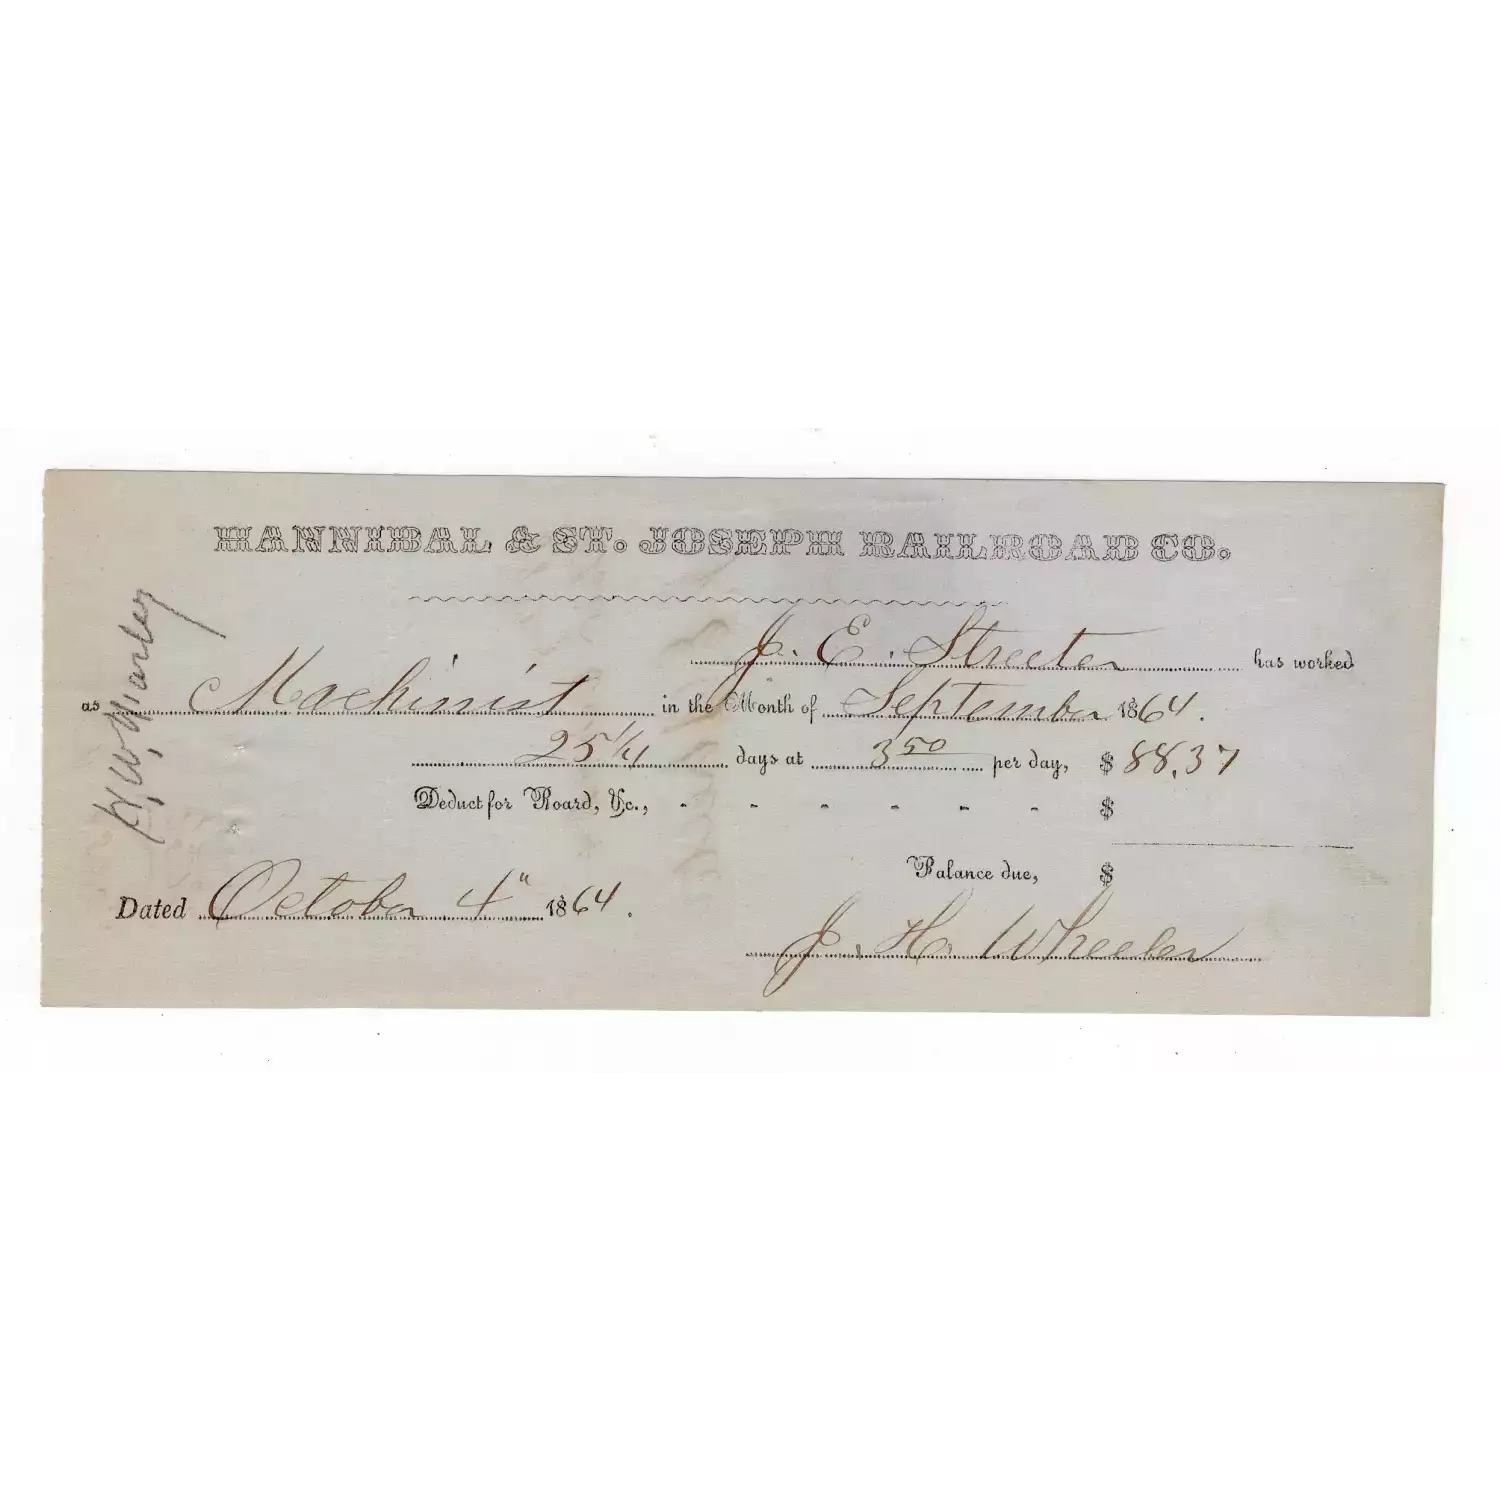 HANNIBAL & ST. JOSEPH RAILROAD CO.
J. E. Streeter has worked
as Machinist in the Month of September 1864.
25 1/4 days at 3 50 per day, $ 88.37
Deduct for Board, &c., - - - - - - $
Balance due, $
Dated October 4" 1864.
J. H. Wheeler
H. W. Marley